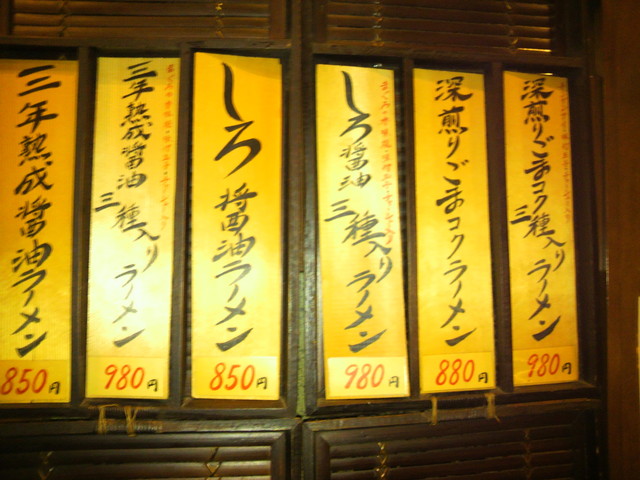 深煎りごまコク三種入りラーメン
980円
深煎りごまコクラーメン
880円
しろ醤油三種入りラーメン
980円
しろ醤油ラーメン
850円
三年熟成醤油三種入りラーメン
980円
三年熟成醤油ラーメン
850円